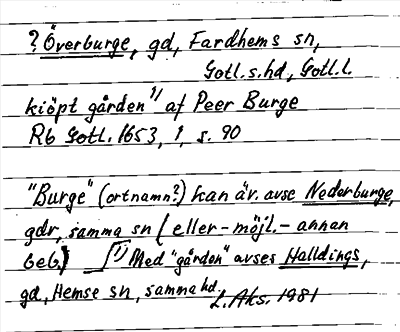 ? Överburge, gd, Fardhems sn,
Gotl. s. hd, Gotl. l.
kiöpt gården 1/ af Peer Burge
Rb Gotl. 1653, 1, s. 90
"Burge" (ortnamn?) kan äv. avse Nederburge,
gdr, samma sn (eller – möjl. – annan
beb.) 1) Med "gården" avses Halldings,
gd, Hemse sn, samma hd.
L. Aks. 1981